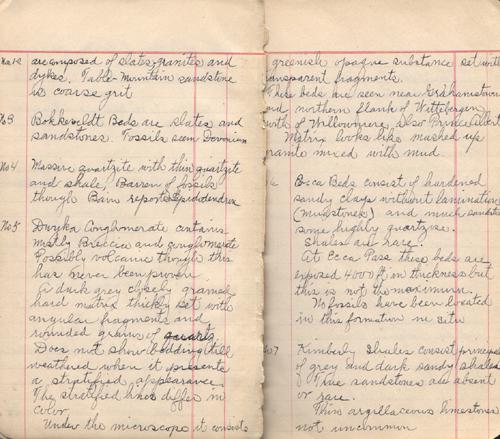 No 1-2 are composed of slates, granites and
dykes. Table-Mountain sandstone
is coarse grit
No 3 Bokkeveldt Beds are slates and
sandstones. Fossils seem Devonian
No 4 Massive quartzite with thin quartzite
and shale. Barren of fossils
though Bain reports Lepidodendra
No 5 Dwyka Conglomerate contains
mostly Breccia and conglomerate
Possibly volcanic though this
has never been proven.
A dark grey closely grained
hard matrix thickly set with
angular fragments and
rounded grains of quartz
Does not show bedding till
weathered when it presents
a stratified appearance.
The stratified lines differ in
color.
Under the microscope it consists
greenish opaque substance set with
transparent fragments.
These beds are seen near Grahamstown
and northern flank of Wittebergen
north of Willowmore. Also Prince Albert
Matrix looks like mashed up
granite mixed with mud.
Ecca Beds consist of hardened
sandy clays without lamination
(Mudstones) and much sandstone
some highly quartzose.
Shales are rare.
At Ecca Pass these beds are
exposed 4000 ft in thickness but
this is not the maximum.
No fossils have been located
in this formation in situ
No 7 Kimberly Shales consist principally
of grey and dark sandy shales
True sandstones are absent
or rare.
Thin argillaceous limestones
not uncommon